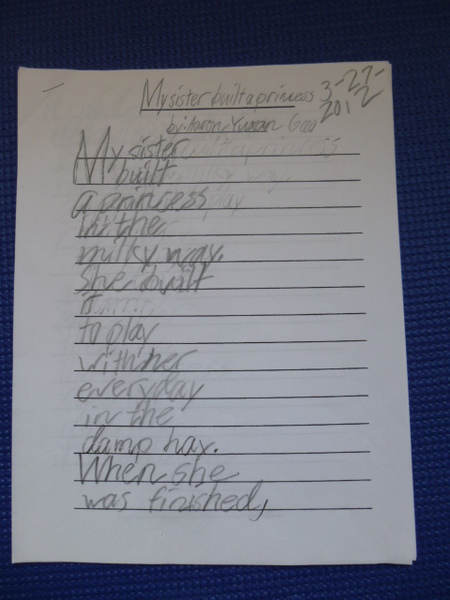 My sister built a princess
3-27-
2012
by: Aaron Yuwan Goo
My sister
built
a princess
in the
milky way.
She built
it
to play
with her
everyday
in the
damp hay.
When she
was finished,